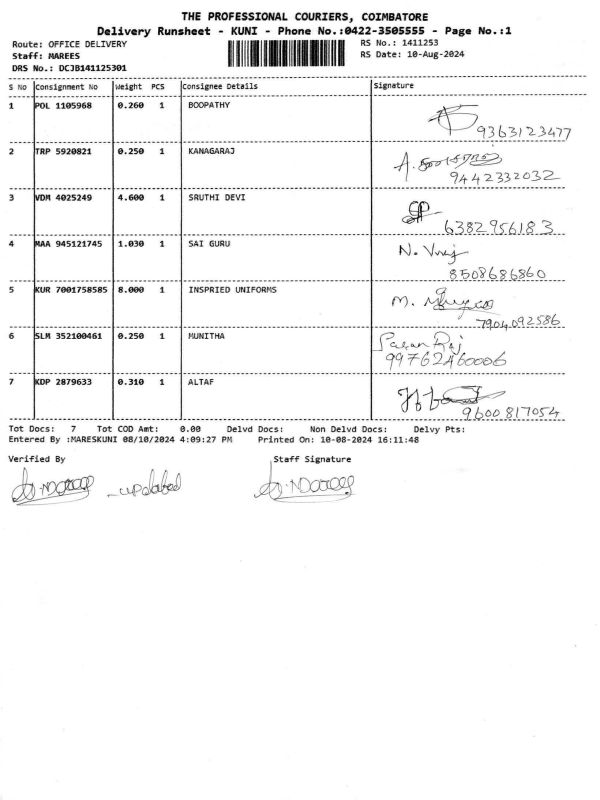 THE PROFESSIONAL COURIERS, COIMBATORE
Delivery Runsheet - KUNI - Phone No.:0422-3505555 - Page No.:1
Route: OFFICE DELIVERY RS No.: 1411253
Staff: MAREES RS Date: 10-Aug-2024
DRS No.: DCJB141125301
S No Consignment No Weight PCS Consignee Details Signature
1 POL 1105968 0.260 1 BOOPATHY
9363123477
2 TRP 5920821 0.250 1 KANAGARAJ
9442332032
3 VDM 4025249 4.600 1 SRUTHI DEVI
6382956183
4 MAA 945121745 1.030 1 SAI GURU
8508686860
5 KUR 7001758585 8.000 1 INSPRIED UNIFORMS
7904092586
6 SLM 352100461 0.250 1 MUNITHA
7 KDP 2879633 0.310 1 ALTAF
9600817054
Tot Docs: 7 Tot COD Amt: 0.00 Delvd Docs: Non Delvd Docs: Delvy Pts:
Entered By :MARESKUNI 08/10/2024 4:09:27 PM Printed On: 10-08-2024 16:11:48
Verified By Staff Signature
updated